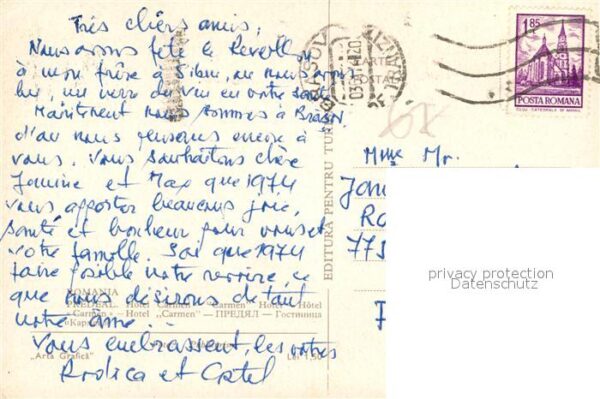 Très chers amis,
Nous avons fêté le Réveillon
à mon frère à Sibiu, où nous avons
bu, un verre de vin en votre santé
Maintenant nous sommes à Brașov
d'où nous pensons encore à
vous. Vous souhaitons chère
Janine et Max que 1974
vous apporter beaucoup joie,
santé et bonheur pour vous et
votre famille. Soi que 1974
faire posible notre revoire, ce
que nous désirons de tout
notre âme.
Vous embrassent, les votres
Rodica et Costel
ROMANIA
PREDEAL. Hotel „Carmen" — Carmen Hotel — Hôtel
«Carmen» — Hotel „Carmen" — ПРЕДЯЛ — Гостиница
„Arta Grafică"
Lei 1,50
EDITURA PENTRU TUR
BRASOV
1,85
POSTA ROMANA
Mme Mr.
773
privacy protection
Datenschutz